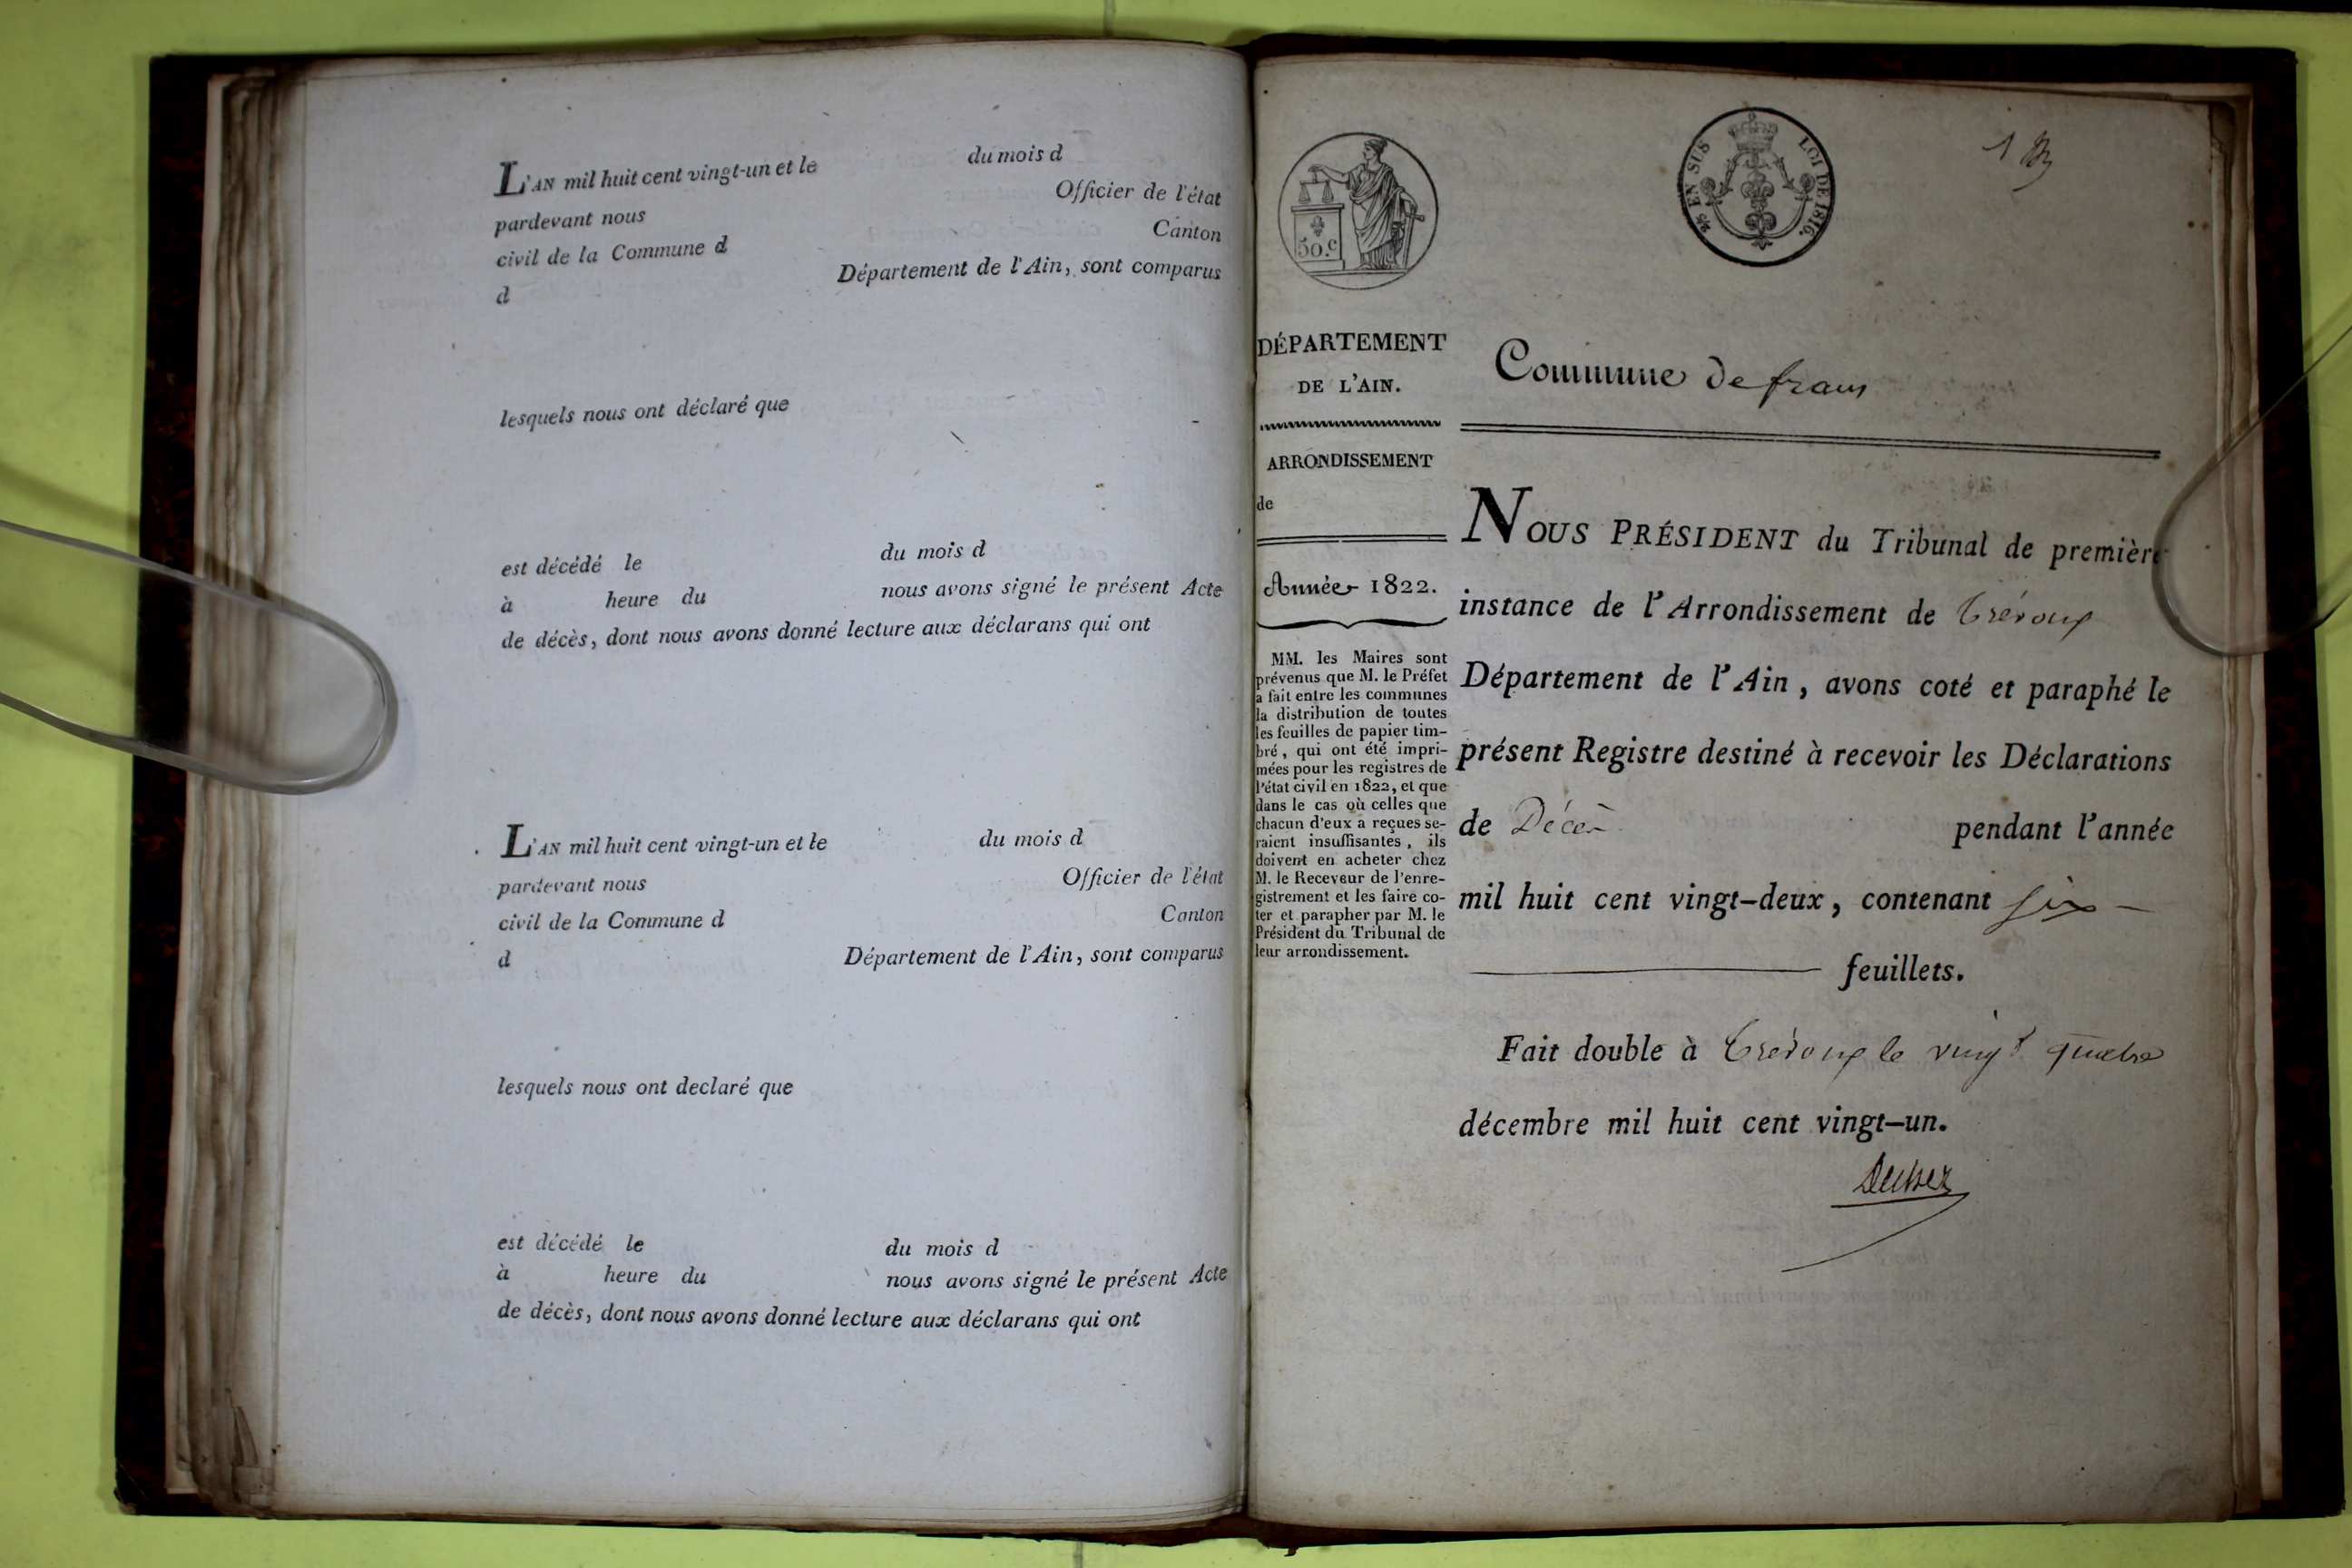 L'AN mil huit cent vingt-un et le du mois d
pardevant nous Officier de l'état
civil de la Commune d Canton
d Département de l'Ain, sont comparus
lesquels nous ont déclaré que
est décédé le du mois d
à heure du nous avons signé le présent Acte
de décès, dont nous avons donné lecture aux déclarans qui ont
L'AN mil huit cent vingt-un et le du mois d
pardevant nous Officier de l'état
civil de la Commune d Canton
d Département de l'Ain, sont comparus
lesquels nous ont declaré que
est décédé le du mois d
à heure du nous avons signé le présent Acte
de décès, dont nous avons donné lecture aux déclarans qui ont
50.c
EN SUS LOI DE 1816.
1
DÉPARTEMENT
DE L'AIN.
ARRONDISSEMENT
de
Année 1822.
MM. les Maires sont
prévenus que M. le Préfet
a fait entre les communes
la distribution de toutes
les feuilles de papier tim-
bré, qui ont été impri-
mées pour les registres de
l'état civil en 1822, et que
dans le cas où celles que
chacun d'eux a reçues se-
raient insuffisantes, ils
doivent en acheter chez
M. le Receveur de l'enre-
gistrement et les faire co-
ter et parapher par M. le
Président du Tribunal de
leur arrondissement.
Commune de frans
NOUS PRÉSIDENT du Tribunal de première
instance de l'Arrondissement de Trévoux
Département de l'Ain, avons coté et paraphé le
présent Registre destiné à recevoir les Déclarations
de Décès pendant l'année
mil huit cent vingt-deux, contenant six
feuillets.
Fait double à Trévoux le vingt quatre
décembre mil huit cent vingt-un.